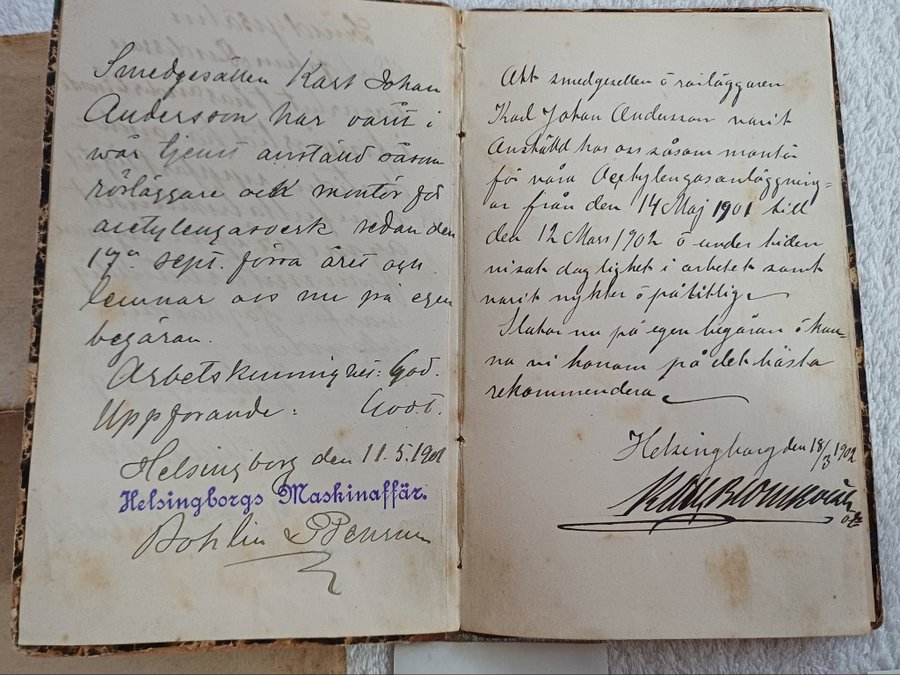 Smedgesällen Karl Johan
Andersson har varit i
vår tjenst anstäld såsom
rörläggare och montör för
acetylengasverk sedan den
17de sept. förra året och
lemnar oss nu på egen
begäran.
Arbetskunnighet: God.
Uppförande: Godt.
Helsingborg den 11.5.1901
Helsingborgs Maskinaffär.
Bohlin
Att smedgesellen & rörläggaren
Karl Johan Andersson varit
Anställd hos oss såsom montör
för våra Acetylengasanläggning-
ar från den 14 Maj 1901 till
den 12 Mars 1902 & under tiden
visat duglighet i arbetet samt
varit nykter & pålitlig
Slutar nu på egen begäran & kun-
na vi honom på det bästa
rekommendera
Helsingborg den 18/3 1902